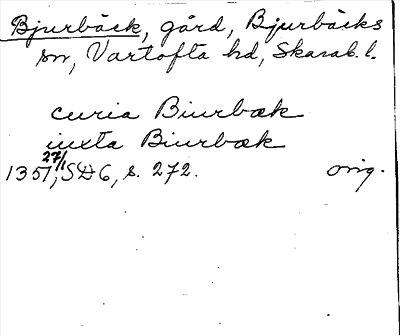 Bjurbäck, gård, Bjurbäcks
sn, Vartofta hd, Skarab. l.
curia Biurbæk
iuxta Biurbæk
1351 27/1, SD 6, s. 272. orig.